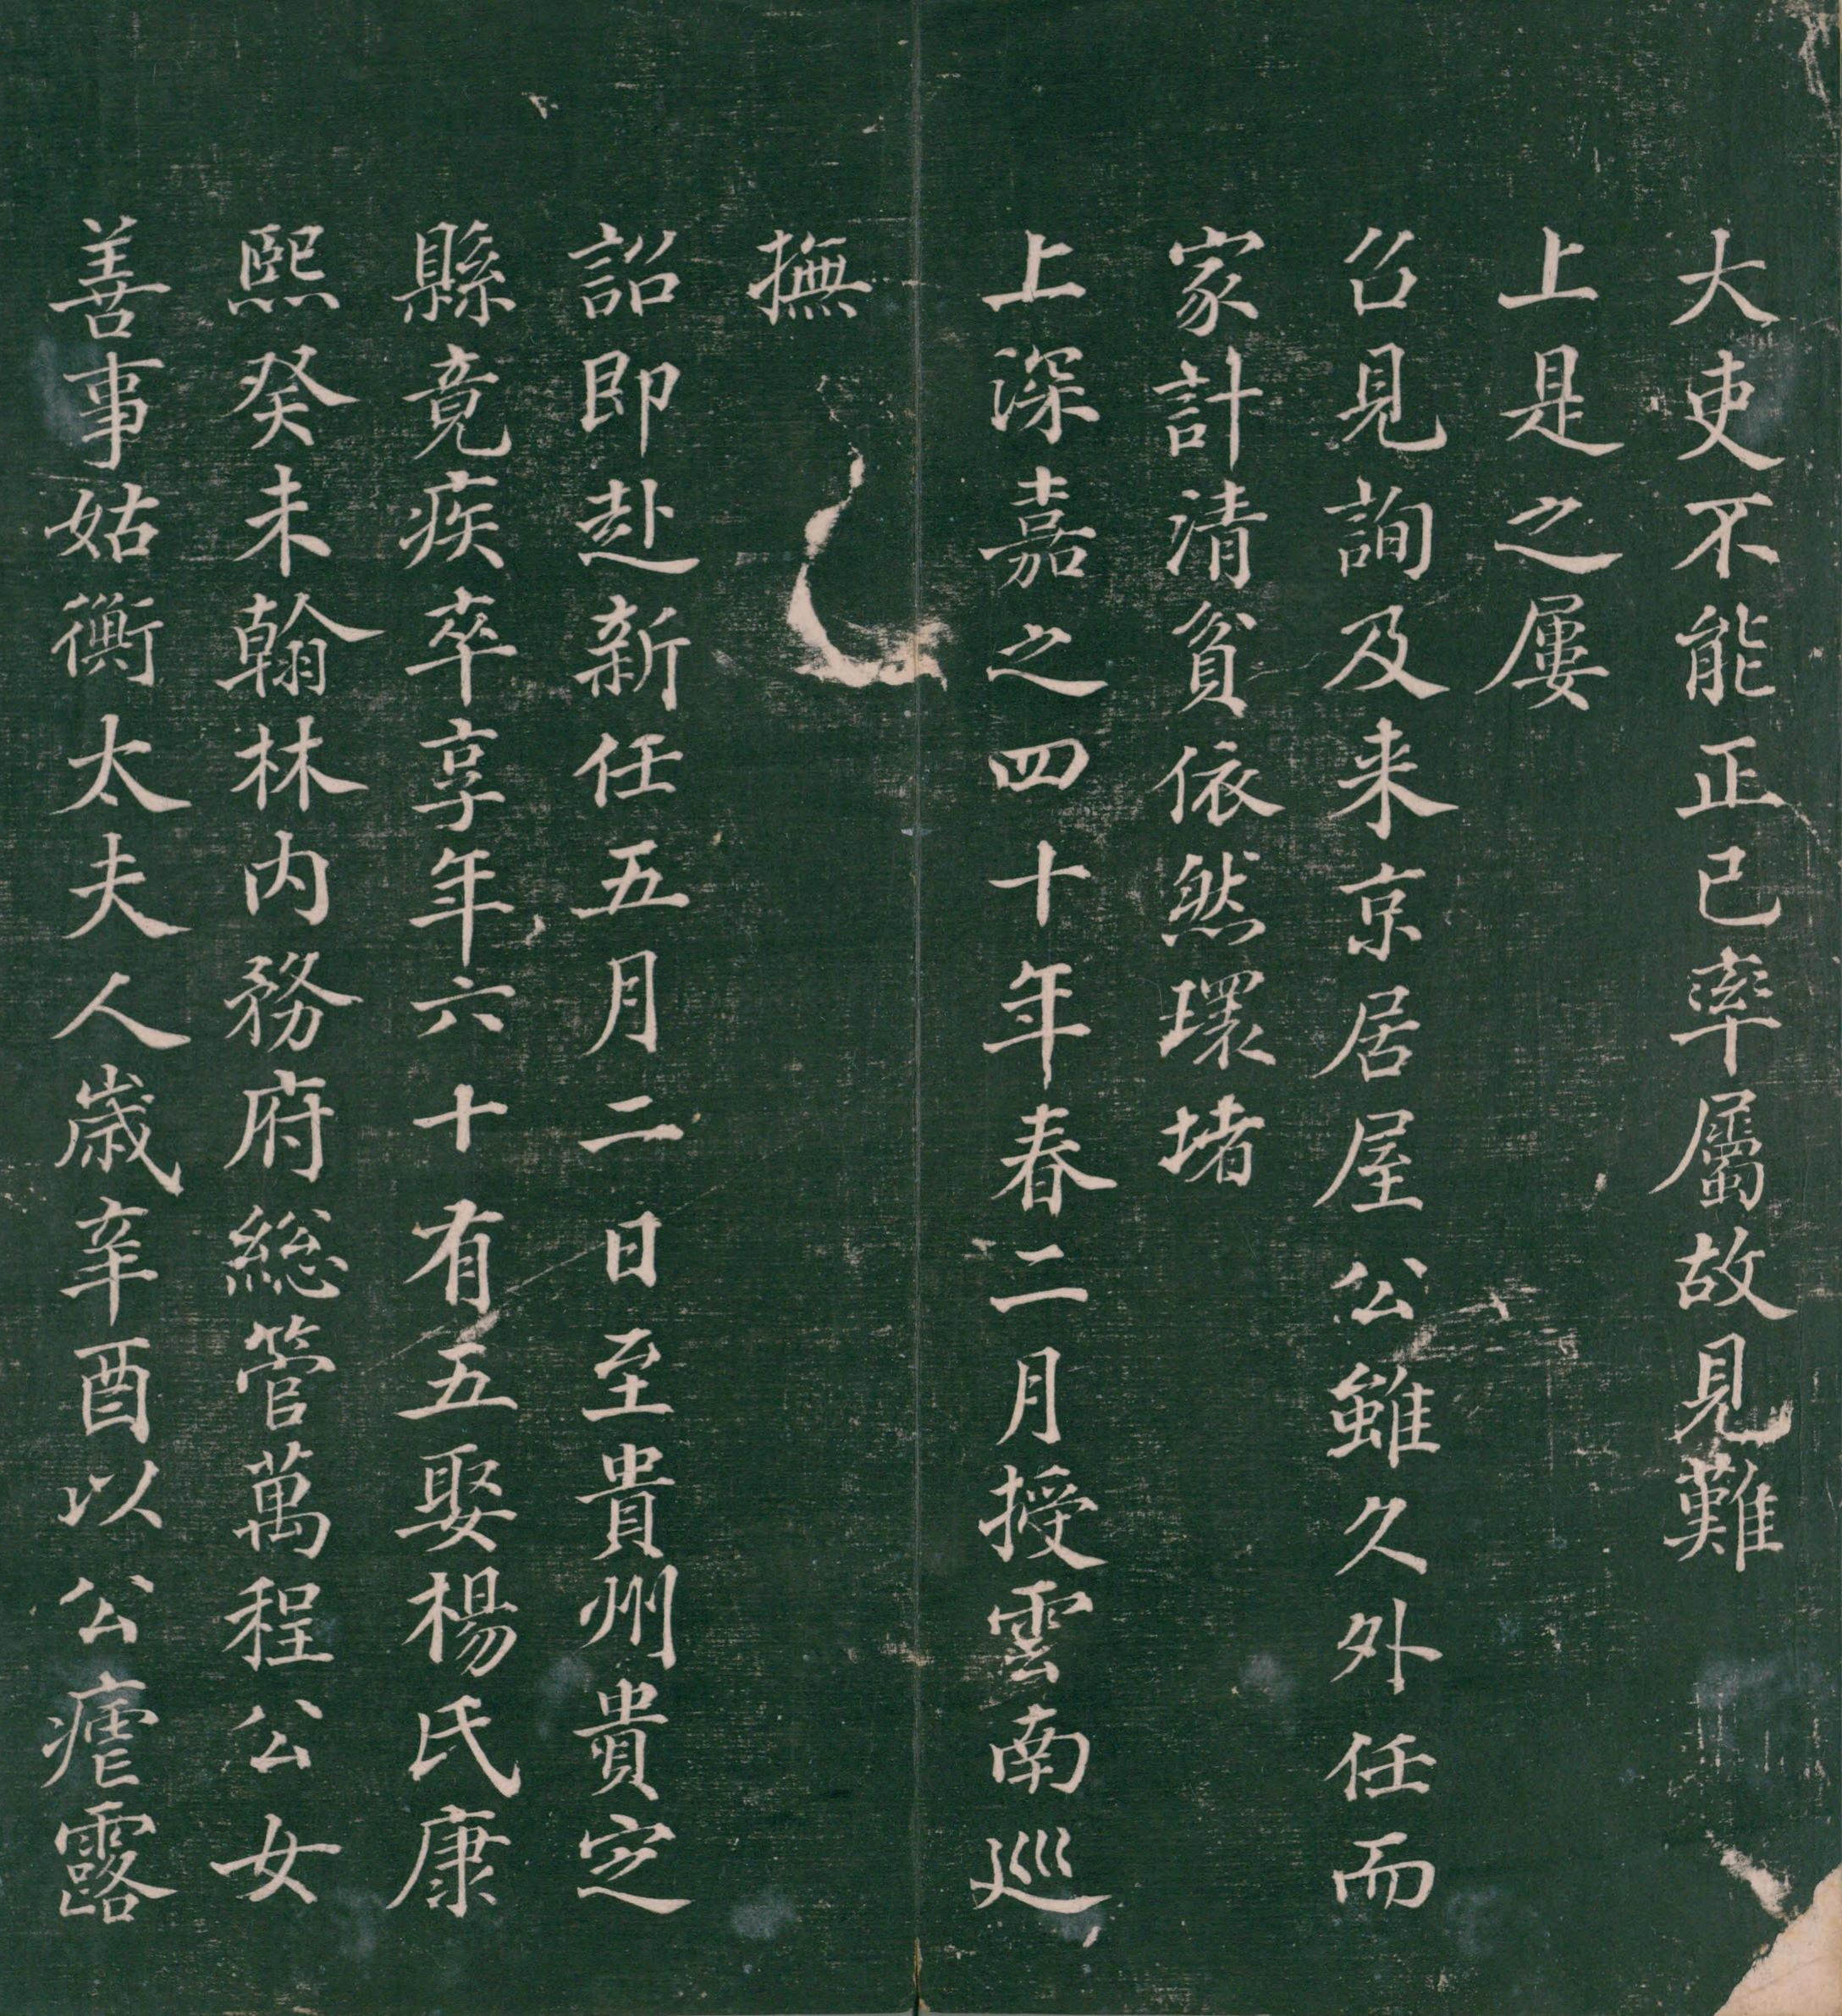 大吏不能正己率屬故見難
上是之屢
召見詢及来京居屋公雖久外任而
家計清貧依然環堵
上深嘉之四十年春二月授雲南巡
撫
詔即赴新任五月二日至貴州貴定
縣竟疾卒享年六十有五娶楊氏康
熙癸未翰林内務府総管萬程公女
善事姑衡太夫人歲辛酉以公瘧露